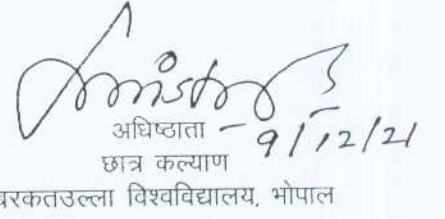 अधिष्ठाता – 9/12/21
छात्र कल्याण
बरकतउल्ला विश्वविद्यालय, भोपाल